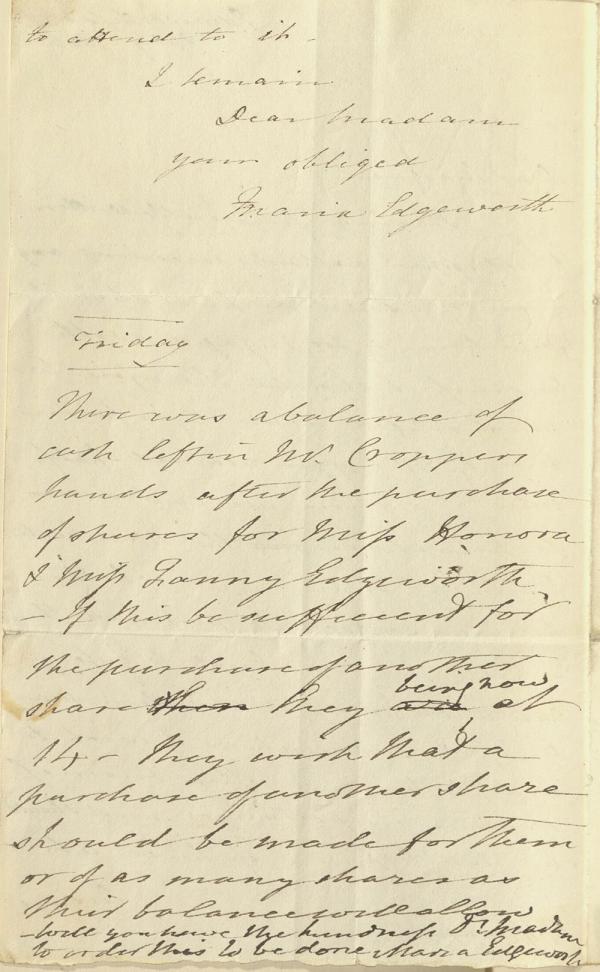 to attend to it -
I remain
Dear Madam
your obliged
Maria Edgeworth
Friday
There was a balance of
cash left in Mr. Croppers
hands after the purchase
of shares for Miss Honora
& Miss Fanny Edgeworth
- If this be sufficient for
the purchase of another
share then they are being now at
14 - they wish that a
purchase of another share
should be made for them
or of as many shares as
their balance will allow
- will you have the kindness Dr. Madam
to order this to be done Maria Edgeworth